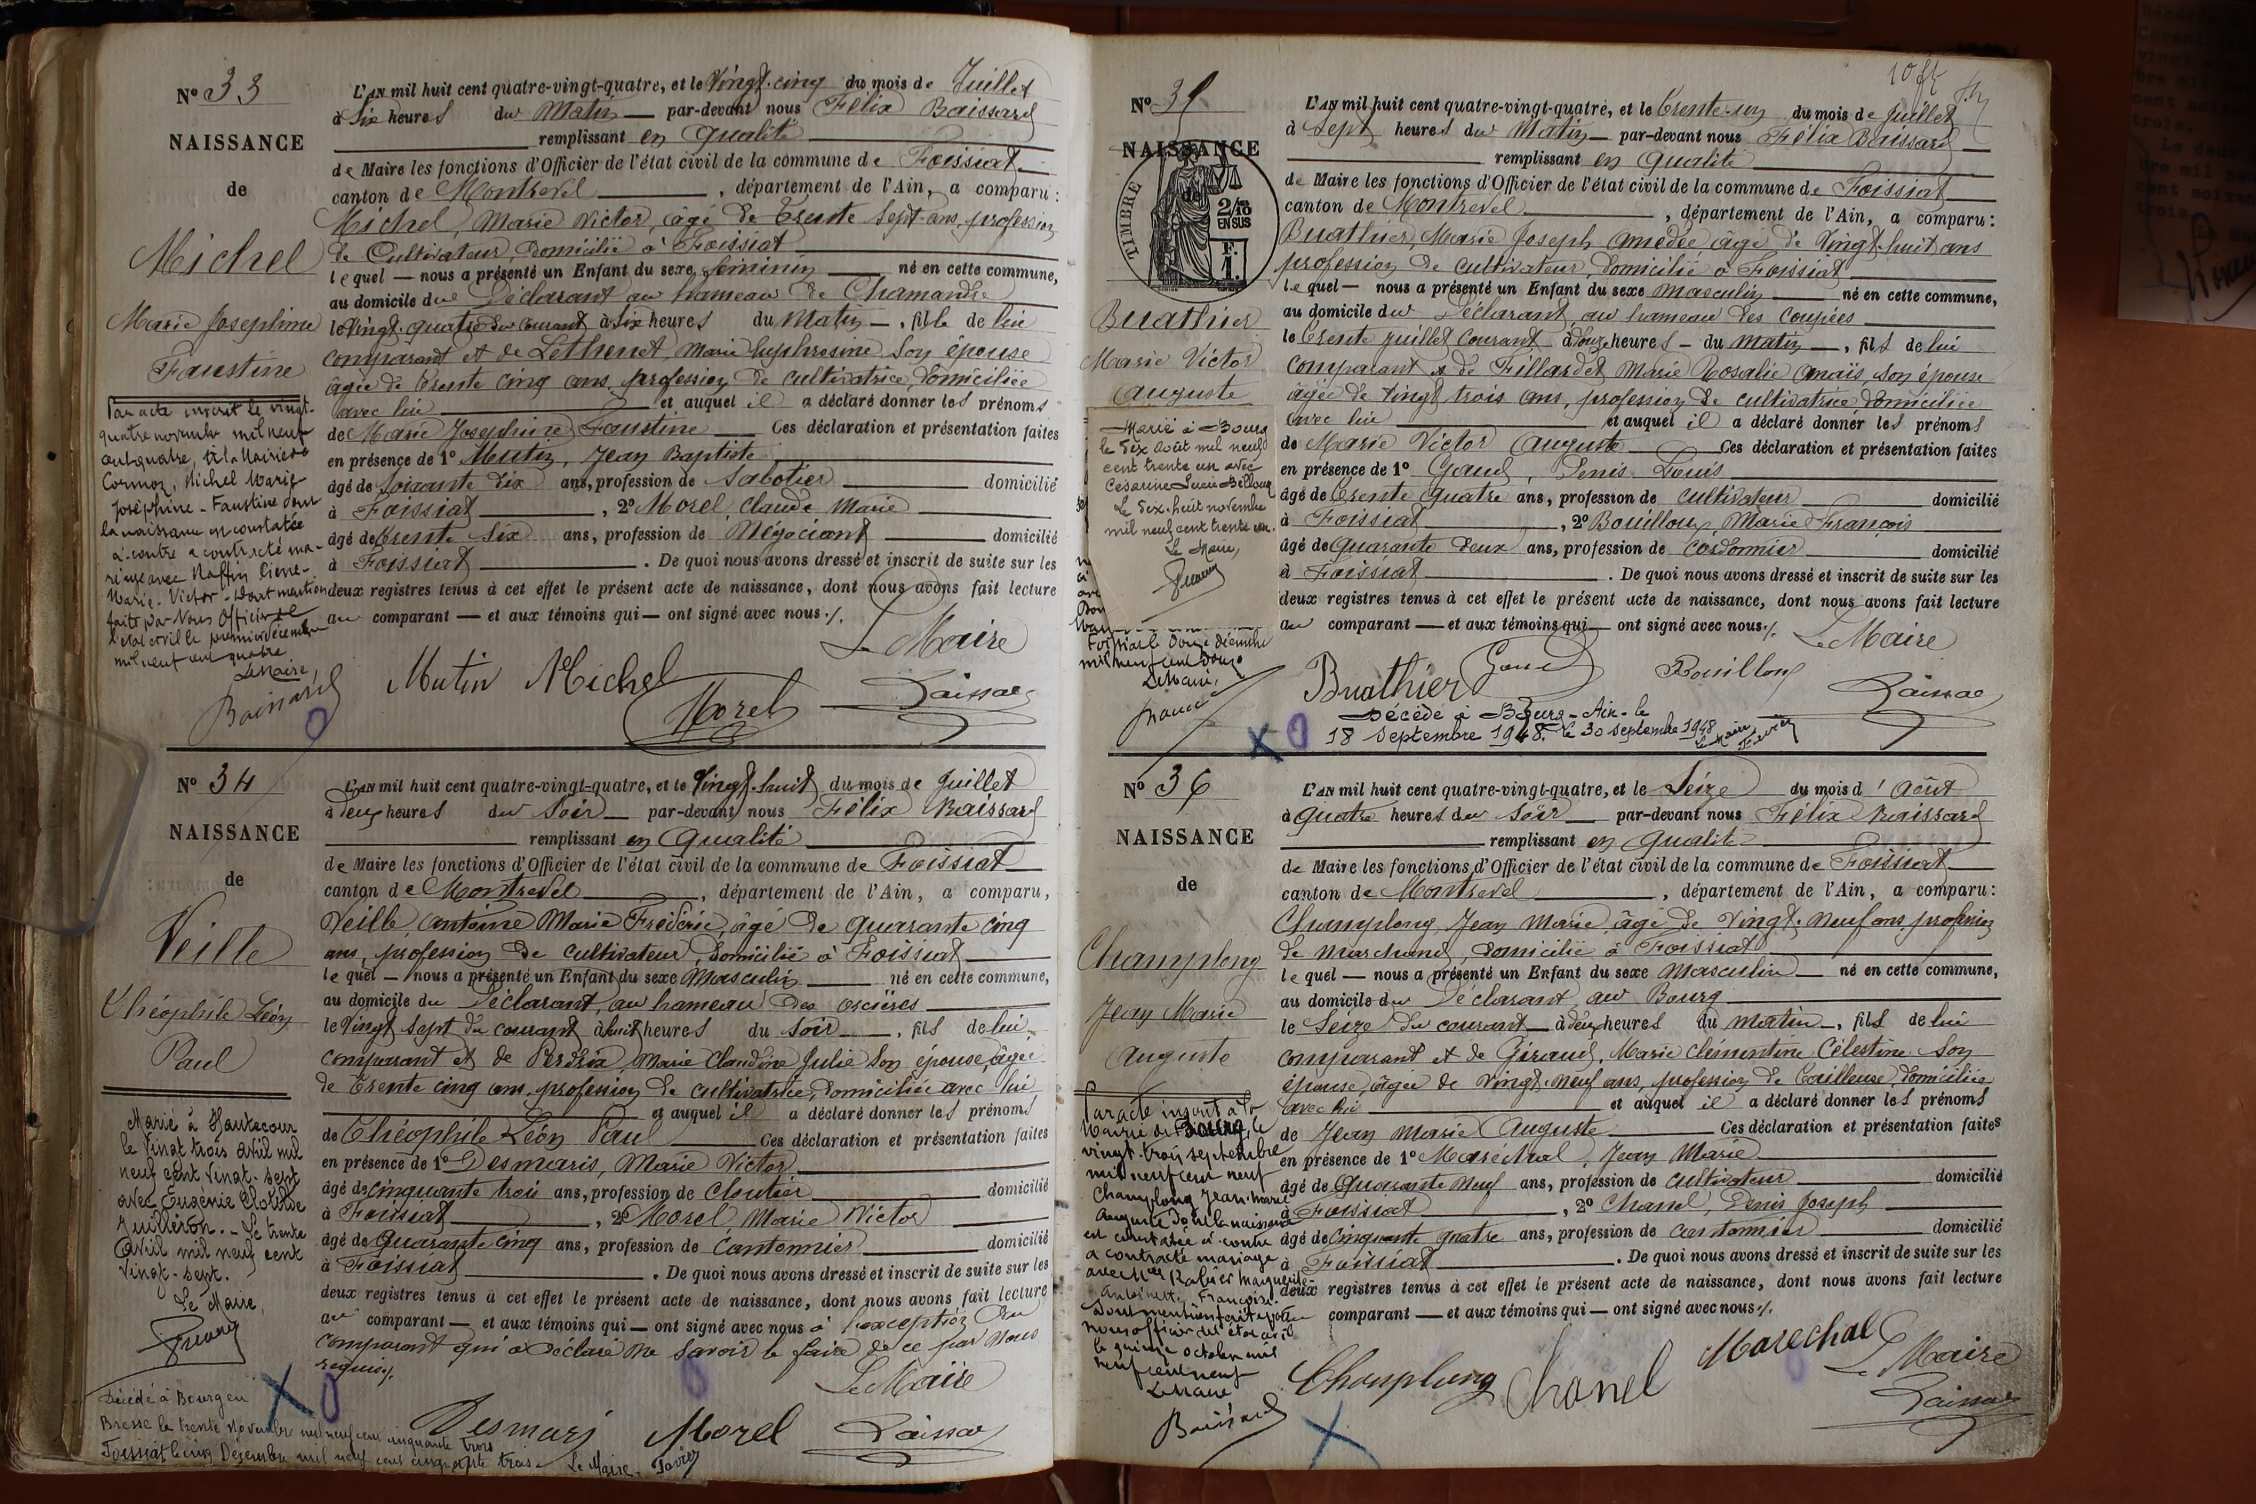 Nº 33
NAISSANCE
de
Michel
Marie Josephine
Faustine
Par acte inscrit le vingt-
quatre novembre mil neuf
cent quatre, à la Mairie de
Cormoz, Michel Marie
Joséphine-Faustine dont
la naissance est constatée
ci-contre a contracté ma-
riage avec Maffin Pierre-
Marie-Victor. Dont mention
faite par Nous Officier de
l'état civil le premier décembre
mil neuf cent quatre
Le Maire,
Baissard
L'AN mil huit cent quatre-vingt-quatre, et le Vingt-cinq du mois de Juillet
à Six heures du Matin par-devant nous Félix Baissard
remplissant en qualité
de Maire les fonctions d'Officier de l'état civil de la commune de Foissiat
canton de Montrevel, département de l'Ain, a comparu:
Michel, Marie Victor, âgé de Trente Sept ans, profession
de Cultivateur, domicilié à Foissiat
lequel — nous a présenté un Enfant du sexe féminin né en cette commune,
au domicile du Déclarant au hameau de Chamandre
le Vingt-quatre du courant à Six heures du Matin, fille de lui
comparant et de Lethenet, Marie Euphrosine son épouse
âgée de trente cinq ans, profession de cultivatrice, domiciliée
avec lui et auquel il a déclaré donner les prénoms
de Marie Josephine Faustine Ces déclaration et présentation faites
en présence de 1º Mutin, Jean Baptiste
âgé de Soixante dix ans, profession de Sabotier domicilié
à Foissiat, 2º Morel, Claude Marie
âgé de trente Six ans, profession de Négociant domicilié
à Foissiat. De quoi nous avons dressé et inscrit de suite sur les
deux registres tenus à cet effet le présent acte de naissance, dont nous avons fait lecture
au comparant — et aux témoins qui — ont signé avec nous ./.
Le Maire
Mutin Michel
Morel Baissard
Nº 34
NAISSANCE
de
Veille
Théophile Léon
Paul
Marié à Hautecour
le Vingt trois avril mil
neuf cent vingt-sept
avec Eugénie Clotilde
Juilléron. - Le trente
avril mil neuf cent
vingt-sept.
Le Maire,
L'AN mil huit cent quatre-vingt-quatre, et le Vingt-huit du mois de Juillet
à deux heures du Soir par-devant nous Félix Baissard
remplissant en Qualité
de Maire les fonctions d'Officier de l'état civil de la commune de Foissiat
canton de Montrevel, département de l'Ain, a comparu,
Veille, Antoine Marie Frédéric, âgé de quarante cinq
ans, profession de cultivateur, domicilié à Foissiat
lequel — nous a présenté un Enfant du sexe Masculin né en cette commune,
au domicile du Déclarant, au hameau des Oscières
le Vingt sept du courant à huit heures du Soir, fils de lui
comparant et de Perdrix, Marie Claudine Julie son épouse, âgée
de trente cinq ans, profession de cultivatrice, domiciliée avec lui
et auquel il a déclaré donner les prénoms
de Théophile Léon Paul Ces déclaration et présentation faites
en présence de 1º Desmaris, Marie Victor
âgé de cinquante trois ans, profession de Cloutier domicilié
à Foissiat, 2º Morel, Marie Victor
âgé de quarante cinq ans, profession de Cantonnier domicilié
à Foissiat. De quoi nous avons dressé et inscrit de suite sur les
deux registres tenus à cet effet le présent acte de naissance, dont nous avons fait lecture
au comparant — et aux témoins qui — ont signé avec nous à l'exception du
comparant qui a déclaré ne savoir le faire de ce par nous
requis ./.
Le Maire
Desmaris Morel Baissard
Décédé à Bourg en
Bresse le trente novembre mil neuf cent cinquante trois
Foissiat le cinq Décembre mil neuf cent cinquante trois. Le Maire. Favier
10 ff
Nº 35
NAISSANCE
de
TIMBRE
2/10
EN SUS
F.
1.
Buathier
Marie Victor
Auguste
Marié à Bourg
le dix août mil neuf
cent trente un avec
Césarine Lucie Belloug
Le dix-huit novembre
mil neuf cent trente un.
Le Maire,
Foissiat le Douze décembre
mil neuf cent Douze
Le Maire,
L'AN mil huit cent quatre-vingt-quatre, et le trente-un du mois de Juillet
à Sept heures du Matin par-devant nous Félix Baissard
remplissant en qualité
de Maire les fonctions d'Officier de l'état civil de la commune de Foissiat
canton de Montrevel, département de l'Ain, a comparu:
Buathier, Marie Joseph Amédée âgé de vingt-huit ans
profession de cultivateur, domicilié à Foissiat
lequel — nous a présenté un Enfant du sexe Masculin né en cette commune,
au domicile du Déclarant, au hameau des Coupées
le trente juillet courant à douze heures du Matin, fils de lui
comparant & de Fillardet Marie Rosalie Anaïs, son épouse
âgée de vingt trois ans, profession de cultivatrice domiciliée
avec lui et auquel il a déclaré donner les prénoms
de Marie Victor Auguste Ces déclaration et présentation faites
en présence de 1º Gaud, Denis Louis
âgé de trente quatre ans, profession de cultivateur domicilié
à Foissiat, 2º Bouilloux Marie François
âgé de quarante deux ans, profession de Cordonnier domicilié
à Foissiat. De quoi nous avons dressé et inscrit de suite sur les
deux registres tenus à cet effet le présent acte de naissance, dont nous avons fait lecture
au comparant — et aux témoins qui — ont signé avec nous ./.
Le Maire
Buathier Gaud Bouilloux
Baissard
Décédé à Bourg-Ain-le
18 septembre 1948. le 30 septembre 1948
le Maire Favier
Nº 36
NAISSANCE
de
Champlong
Jean Marie
Auguste
Par acte inscrit à la
Mairie de Bourg, le
vingt-trois septembre
mil neuf cent neuf
Champlong Jean-Marie
Auguste dont la naissance
est constatée ci-contre
a contracté mariage
avec Mlle Rabier Marguerite
Antoinette Françoise.
Dont mention faite par
nous officier de l'état civil
le quinze octobre mil
neuf cent neuf
Le Maire
Baissard
L'AN mil huit cent quatre-vingt-quatre, et le Seize du mois d'Août
à quatre heures du Soir par-devant nous Félix Baissard
remplissant en qualité
de Maire les fonctions d'Officier de l'état civil de la commune de Foissiat
canton de Montrevel, département de l'Ain, a comparu:
Champlong Jean Marie, âgé de vingt-neuf ans, profession
de Marchand, domicilié à Foissiat
lequel — nous a présenté un Enfant du sexe Masculin né en cette commune,
au domicile du Déclarant, au Bourg
le Seize du courant à deux heures du matin, fils de lui
comparant et de Géraud, Marie Clémentine Célestine son
épouse, âgée de vingt-neuf ans, profession de Tailleuse, domiciliée
avec lui et auquel il a déclaré donner les prénoms
de Jean Marie Auguste Ces déclaration et présentation faites
en présence de 1º Maréchal, Jean Marie
âgé de Quarante Neuf ans, profession de cultivateur domicilié
à Foissiat, 2º Chanel, Denis Joseph
âgé de cinquante quatre ans, profession de cantonnier domicilié
à Foissiat. De quoi nous avons dressé et inscrit de suite sur les
deux registres tenus à cet effet le présent acte de naissance, dont nous avons fait lecture
au comparant — et aux témoins qui — ont signé avec nous ./.
Marechal
Le Maire
Champlong Chanel
Baissard